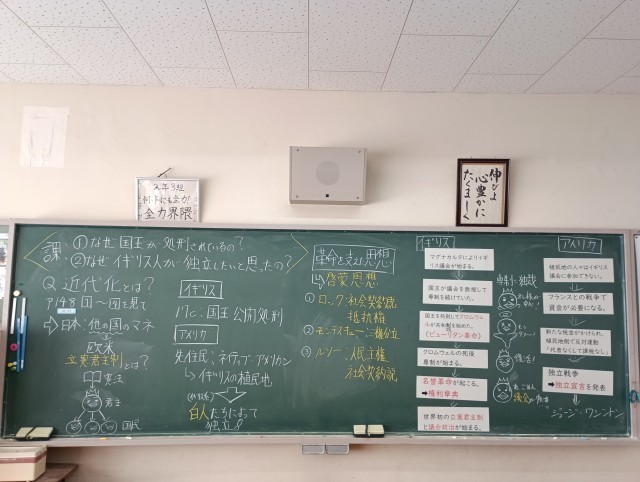 2年3組
何事にも全力!
全力界隈
伸びよ
心豊かに
たくましく
課
①なぜ国王が処刑されているの?
②なぜイギリス人から独立したいと思ったの?
Q 近代化とは?
P148
→日本:他の国のマネ
欧米
立憲君主制とは?
憲法
君主
国民
イギリス
17c:国王 公開処刑
アメリカ
先住民:ネイティブアメリカン
↳イギリスの植民地
白人たちによって
独立!
革命を支えた思想
↳啓蒙思想
①ロック:社会契約説
抵抗権
②モンテスキュー:三権分立
③ルソー:人民主権
社会契約説
イギリス
マグナカルタによりイギリス議会が始まる。
国王が議会を無視して専制を続けていた。
国王を処刑しクロムウェルが共和制を始めた。
(ピューリタン革命)
クロムウェルの死後
専制が始まる。
名誉革命が起こる。
➡権利章典
世界初の立憲君主制と議会政治が始まる。
専制と独裁
復活!
アメリカ
植民地の人々はイギリス議会に参加できない。
フランスとの戦争で資金が必要になる。
新たな税金がかけられ、
植民地側で反対運動
「代表なくして課税なし」
独立戦争
➡独立宣言を発表
"ジョージ・ワシントン